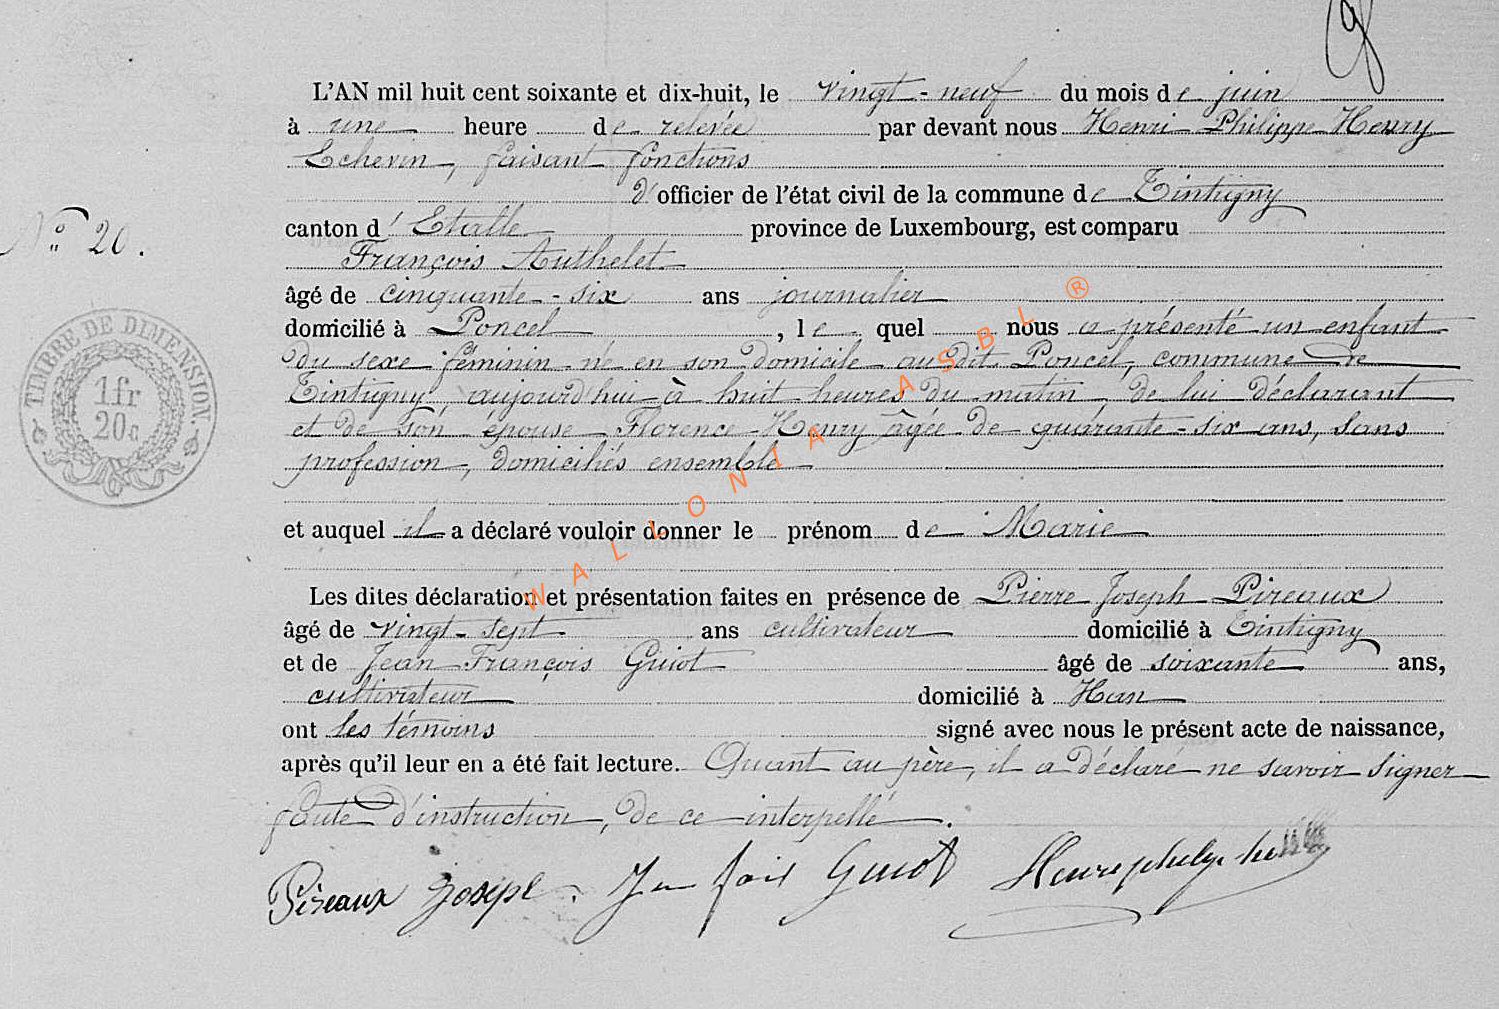 L'AN mil huit cent soixante et dix-huit, le vingt-neuf du mois de juin
à une heure de relevée par devant nous Henri Philippe Henry
Echevin, faisant fonctions
d'officier de l'état civil de la commune de Tintigny
canton d'Etalle province de Luxembourg, est comparu
N° 20.
François Authelet
âgé de cinquante-six ans journalier
domicilié à Poncel, lequel nous a présenté un enfant
du sexe féminin né en son domicile au dit Poncel, commune de
Tintigny aujourd'hui à huit heures du matin, de lui déclarant
et de son épouse Florence Henry âgée de quarante-six ans, sans
profession, domiciliés ensemble
et auquel il a déclaré vouloir donner le prénom de Marie
Les dites déclaration et présentation faites en présence de Pierre Joseph Pireaux
âgé de vingt-sept ans cultivateur domicilié à Tintigny
et de Jean François Guiot âgé de soixante ans,
cultivateur domicilié à Han
ont les témoins signé avec nous le présent acte de naissance,
après qu'il leur en a été fait lecture. Quant au père, il a déclaré ne savoir signer
faute d'instruction, de ce interpellé.
Pireaux Joseph. Guiot
TIMBRE DE DIMENSION.
1fr
20c
WALLONIA ASBL ®